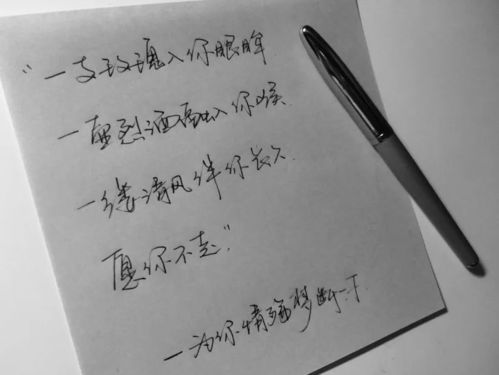 “一支玫瑰入你眼眸
一壶烈酒入你喉
一缕清风伴你长久
愿你不走”
一为你情殇梦断